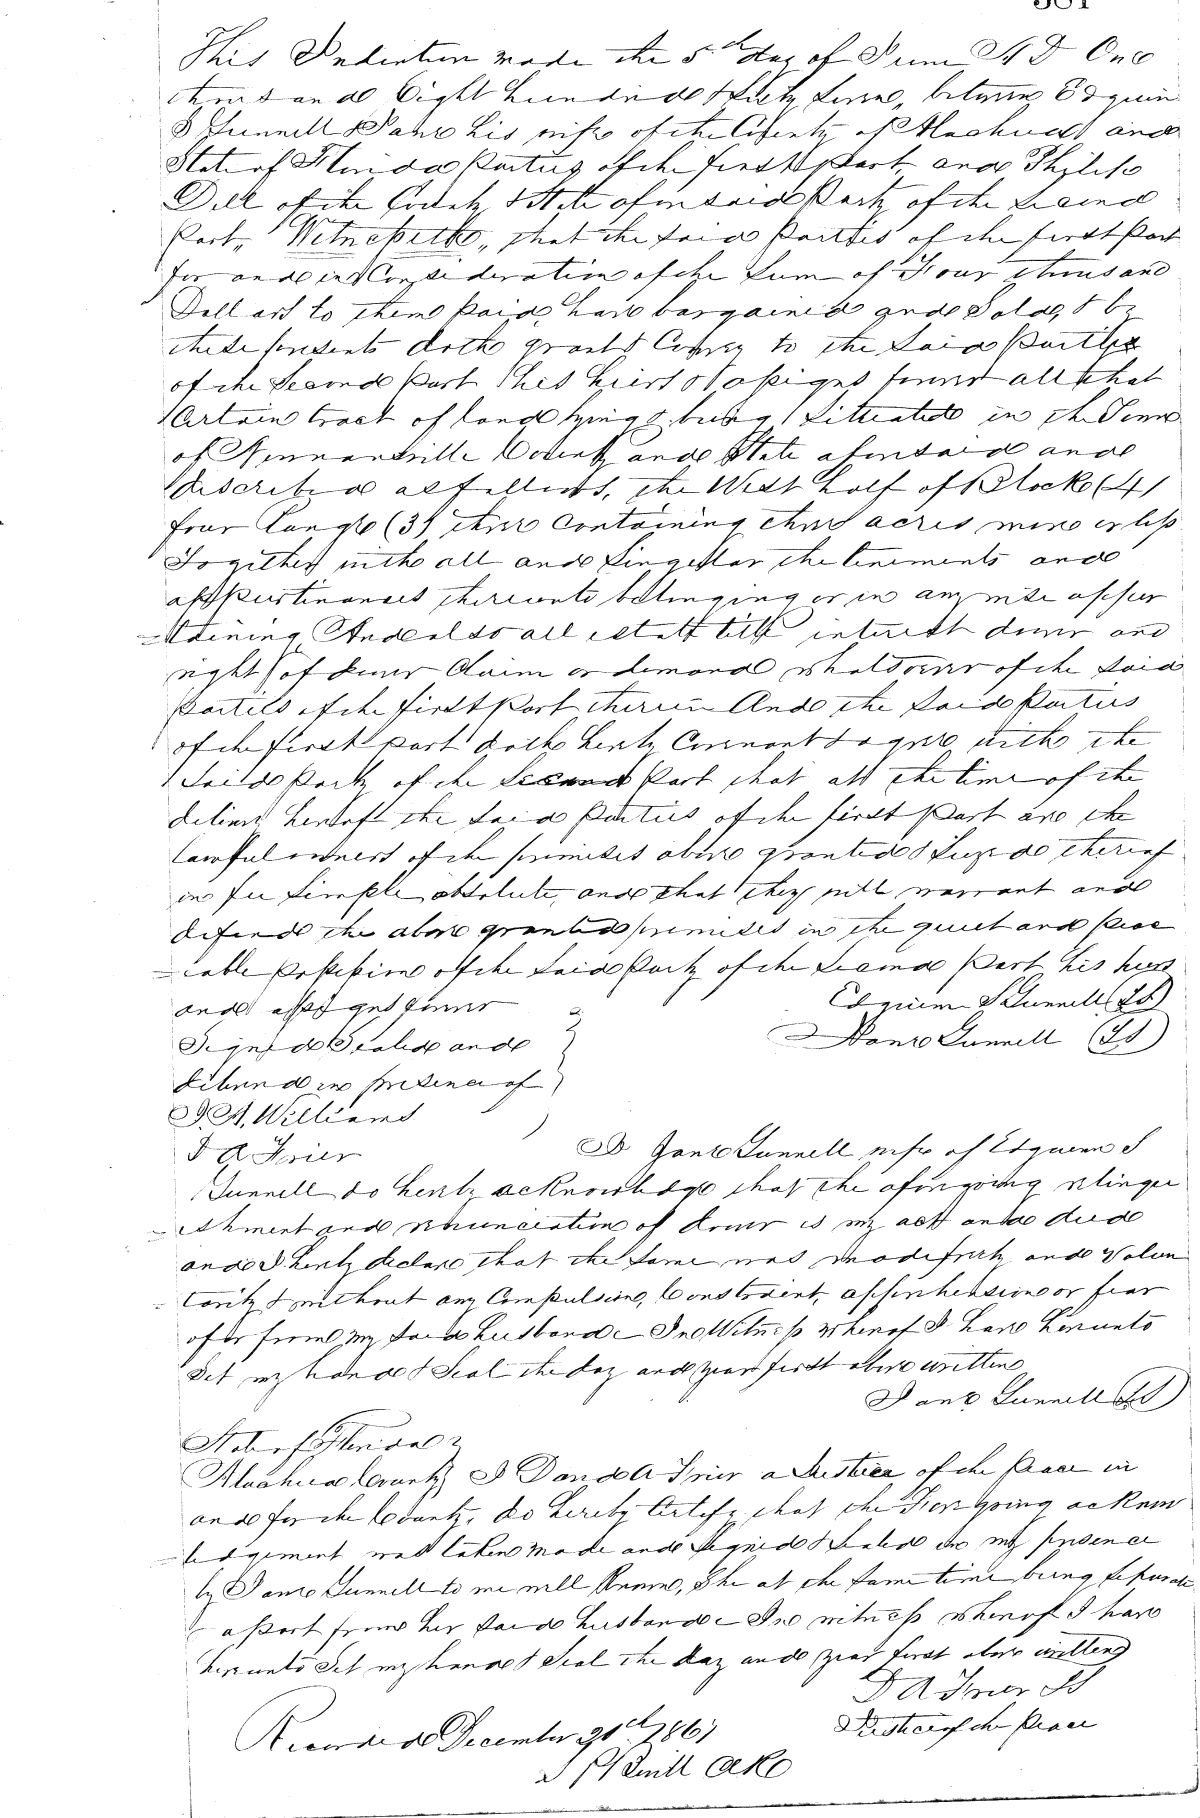 This Indenture made the 5th day of June A D One
thousand Eight hundred & Sixty seven, between Edquin
S Tunnell & Jane his wife of the County of Alachua and
State of Florida Parties of the first part, and Philip
Dell of the County & State aforesaid Party of the Second
Part, Witnesseth, that the said Parties of the first Part
for and in Consideration of the Sum of Four thousand
Dollars to them Paid, have bargained and Sold, & by
these presents doth grant & Convey to the Said Parties
of the Second Part & his heirs & assigns forever all that
Certain tract of land lying & being & situated in the Town
of Newnansville County and State aforesaid and
described as follows, the West half of Block (4)
four Range (3) three Containing three acres more or less
Together with all and Singular the tenements and
appurtenances thereunto belonging or in any wise apper
-taining And also all estate title interest dower and
right of dower Claim or demand whatsoever of the Said
Parties of the first Part therein And the Said Parties
of the first part doth hereby Covenant & agree with the
Said Party of the Second Part that at the time of the
delivery hereof the Said Parties of the first Part are the
lawful owners of the premises above granted & Seized thereof
in fee Simple absolute, and that they will warrant and
defend the above granted premises in the quiet and peac
-iable possession of the Said Party of the Second Part his heirs
and assigns forever Edquin S Tunnell (LS)
Signed Sealed and Jane Tunnell (LS)
delivered in presence of
J. A. Williams
D A Frier I Jane Tunnell wife of Edquin S
Tunnell do hereby acknowledge that the aforegoing relinqu
-ishment and renunciation of dower is my act and deed
and I hereby declare that the same was made freely and Volun
-tarily & without any Compulsion, Constraint, apprehension or fear
of or from my Said husband - In Witness Whereof I have hereunto
Set my hand & Seal the day and year first above written
Jane Tunnell (LS)
State of Florida
Alachua County I D A Frier a Justice of the Peace in
and for the County, do hereby Certify that the Foregoing acknow
-ledgement was taken made and Signed & Sealed in my presence
by Jane Tunnell to me well Known, She at the Same time being Separate
& apart from her Said husband - In witness whereof I have
hereunto Set my hand & Seal the day and year first above written
D A Frier LS
Justice of the Peace
Recorded December 1867